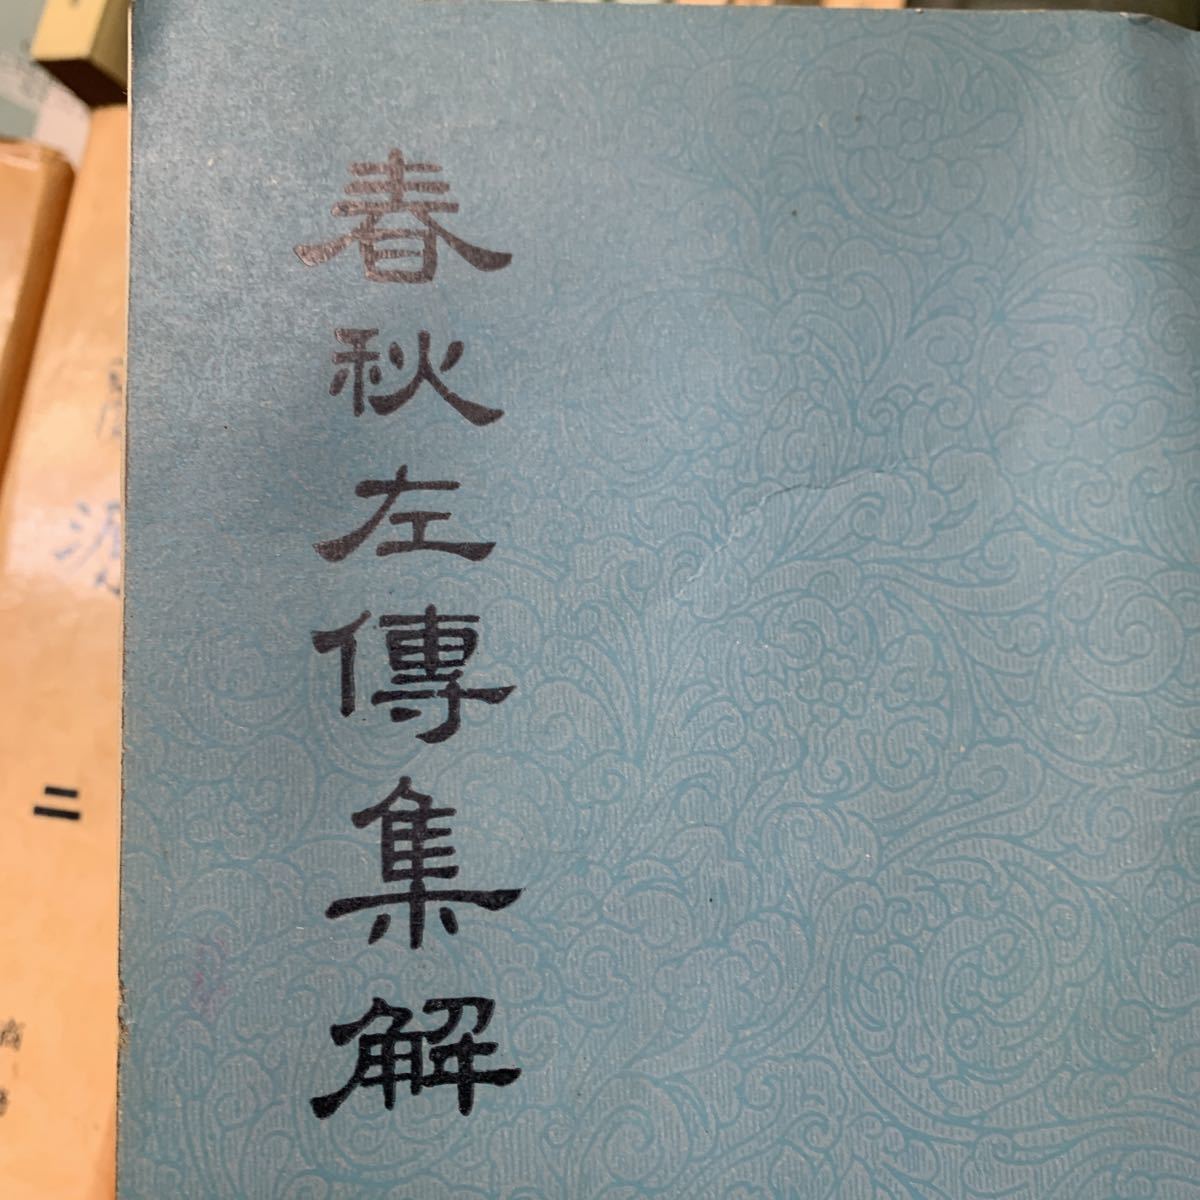 春秋左傳集解
二